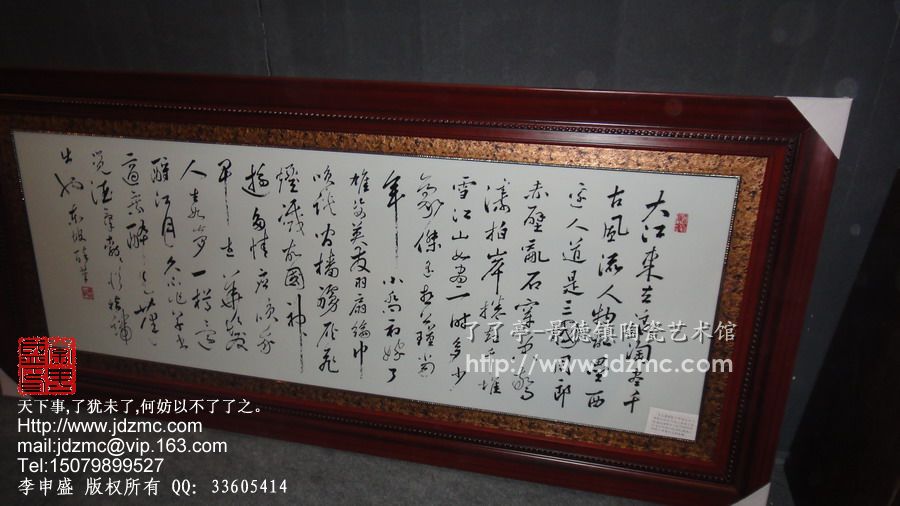 大江東去浪淘盡千
古風流人物故壘西
邊人道是三國周郎
赤壁亂石穿空驚
濤拍岸捲起千堆
雪江山如畫一時多少
豪傑遙想公瑾當
年 小喬初嫁了
雄姿英發羽扇綸巾
笑談間檣艣灰飛
煙滅故國神
遊多情應笑我
早生華髮
人生如夢一樽還
酹江月 久不作草書
適乘醉走筆
覺酒氣勃勃從指端
出也 東坡醉筆
了了亭-景德镇陶瓷艺术馆
http://www.jdzmc.com
天下事,了犹未了,何妨以不了了之。
Http://www.jdzmc.com
mail:jdzmc@vip.163.com
Tel:15079899527
李申盛 版权所有 QQ: 33605414